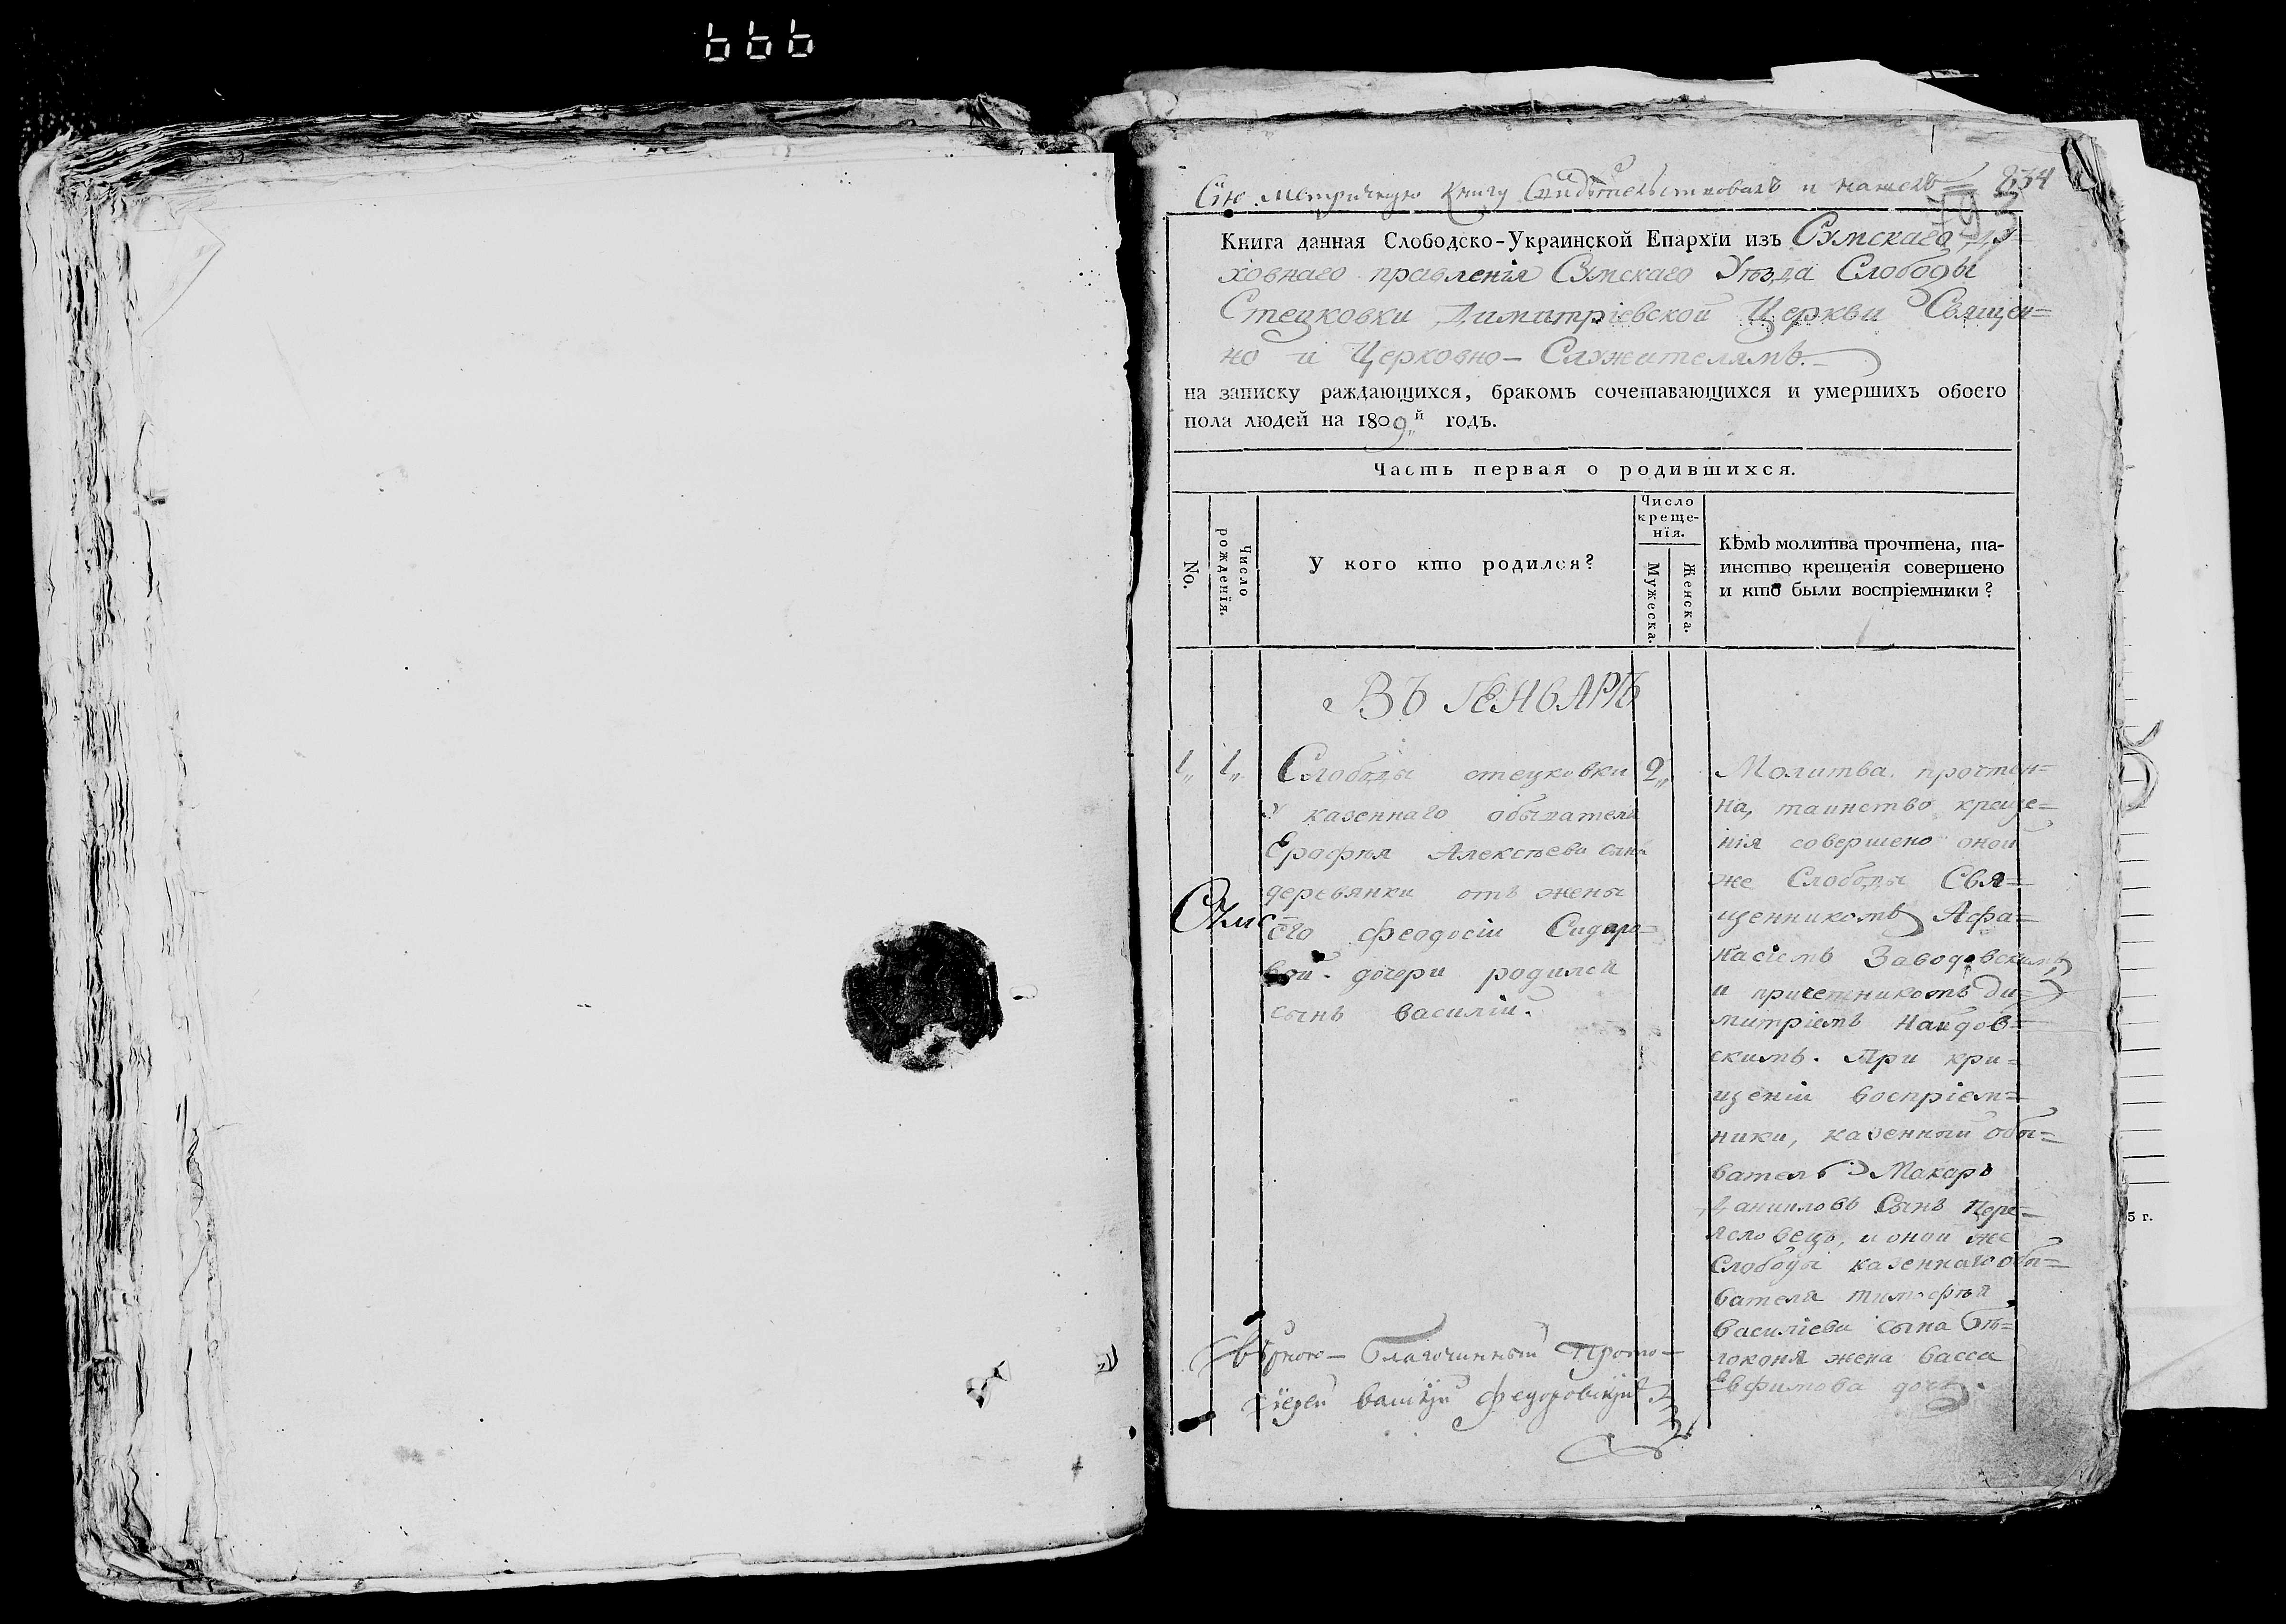 666
Сїю метрическую книгу свидѣтельствовалъ и нашелъ 834
Книга данная Слободско-Украинской Епархїи изъ Сумскаго ду=
ховнаго правленїя Сумскаго Уѣзда Слободы
Стецковки Димитрїевской Церкви Священ=
но и Церковно-Служителямъ.
на записку раждающихся, бракомъ сочетавающихся и умершихъ обоего
пола людей на 1809„й годъ.
Часть первая о родившихся.
No.
Число рожденїя.
У кого кто родился?
Число
креще-
нїя.
Мужеска.
Женска.
Кѣмъ молитва прочтена, та-
инство крещенїя совершено
и кто были воспрїемники?
ВЪ ГЕНВАРѢ
1„ 1„ Слободы стецковки 2„
у казеннаго обывателя
Ерофѣя Алексѣева сына
деревянки отъ жены
его феодосїи Сидоро=
вой дочери родился
сынъ василїй.
Сумс
Молитва прочтен=
на, таинство креще=
нїя совершено оной
же Слободы Свя=
щенникомъ Афа=
насїемъ Заводовскимъ,
и причетникомъ ди=
митрїемъ Наидов=
скимъ. При кри=
щенїи воспрїем=
ники, казенный обы=
ватель Макаръ
Даниловъ Сынъ Пере=
яслoвецъ, и оной же
Слободы казеннаго обы=
вателя тимофѣя
Василїева сына бѣ=
локоня жена васса
Евфимова дочь.
вѣрною - Благочинный Прото-
їерей василїй федоровскїй
5 г.